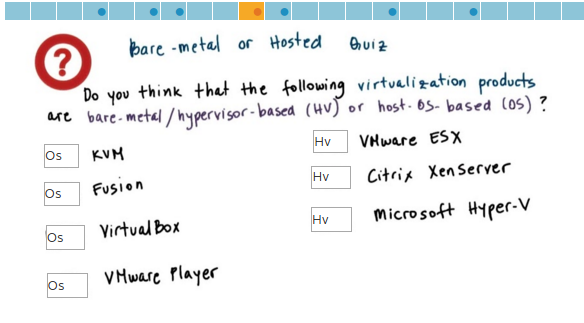 ?
Bare-metal or Hosted Quiz
Do you think that the following virtualization products
are bare-metal/hypervisor-based (HV) or host-OS-based (OS)?
Os KVM
Os Fusion
Os VirtualBox
Os VMware Player
Hv VMware ESX
Hv Citrix XenServer
Hv Microsoft Hyper-V